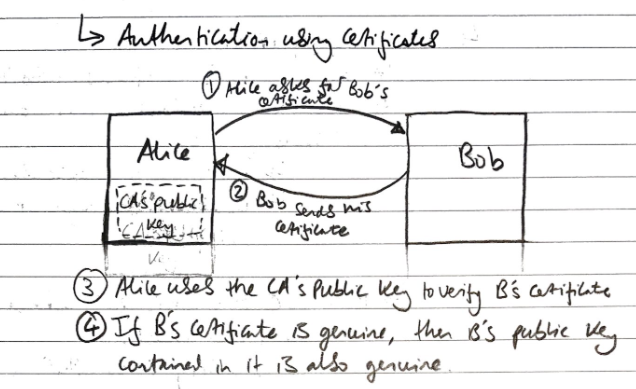 ↳ Authentication using Certificates
① Alice asks for Bob's
certificate
Alice
Bob
CA's public
key
② Bob sends his
Certificate
③ Alice uses the CA's Public Key to verify B's certificate
④ If B's Certificate is genuine, then B's public key
contained in it is also genuine.